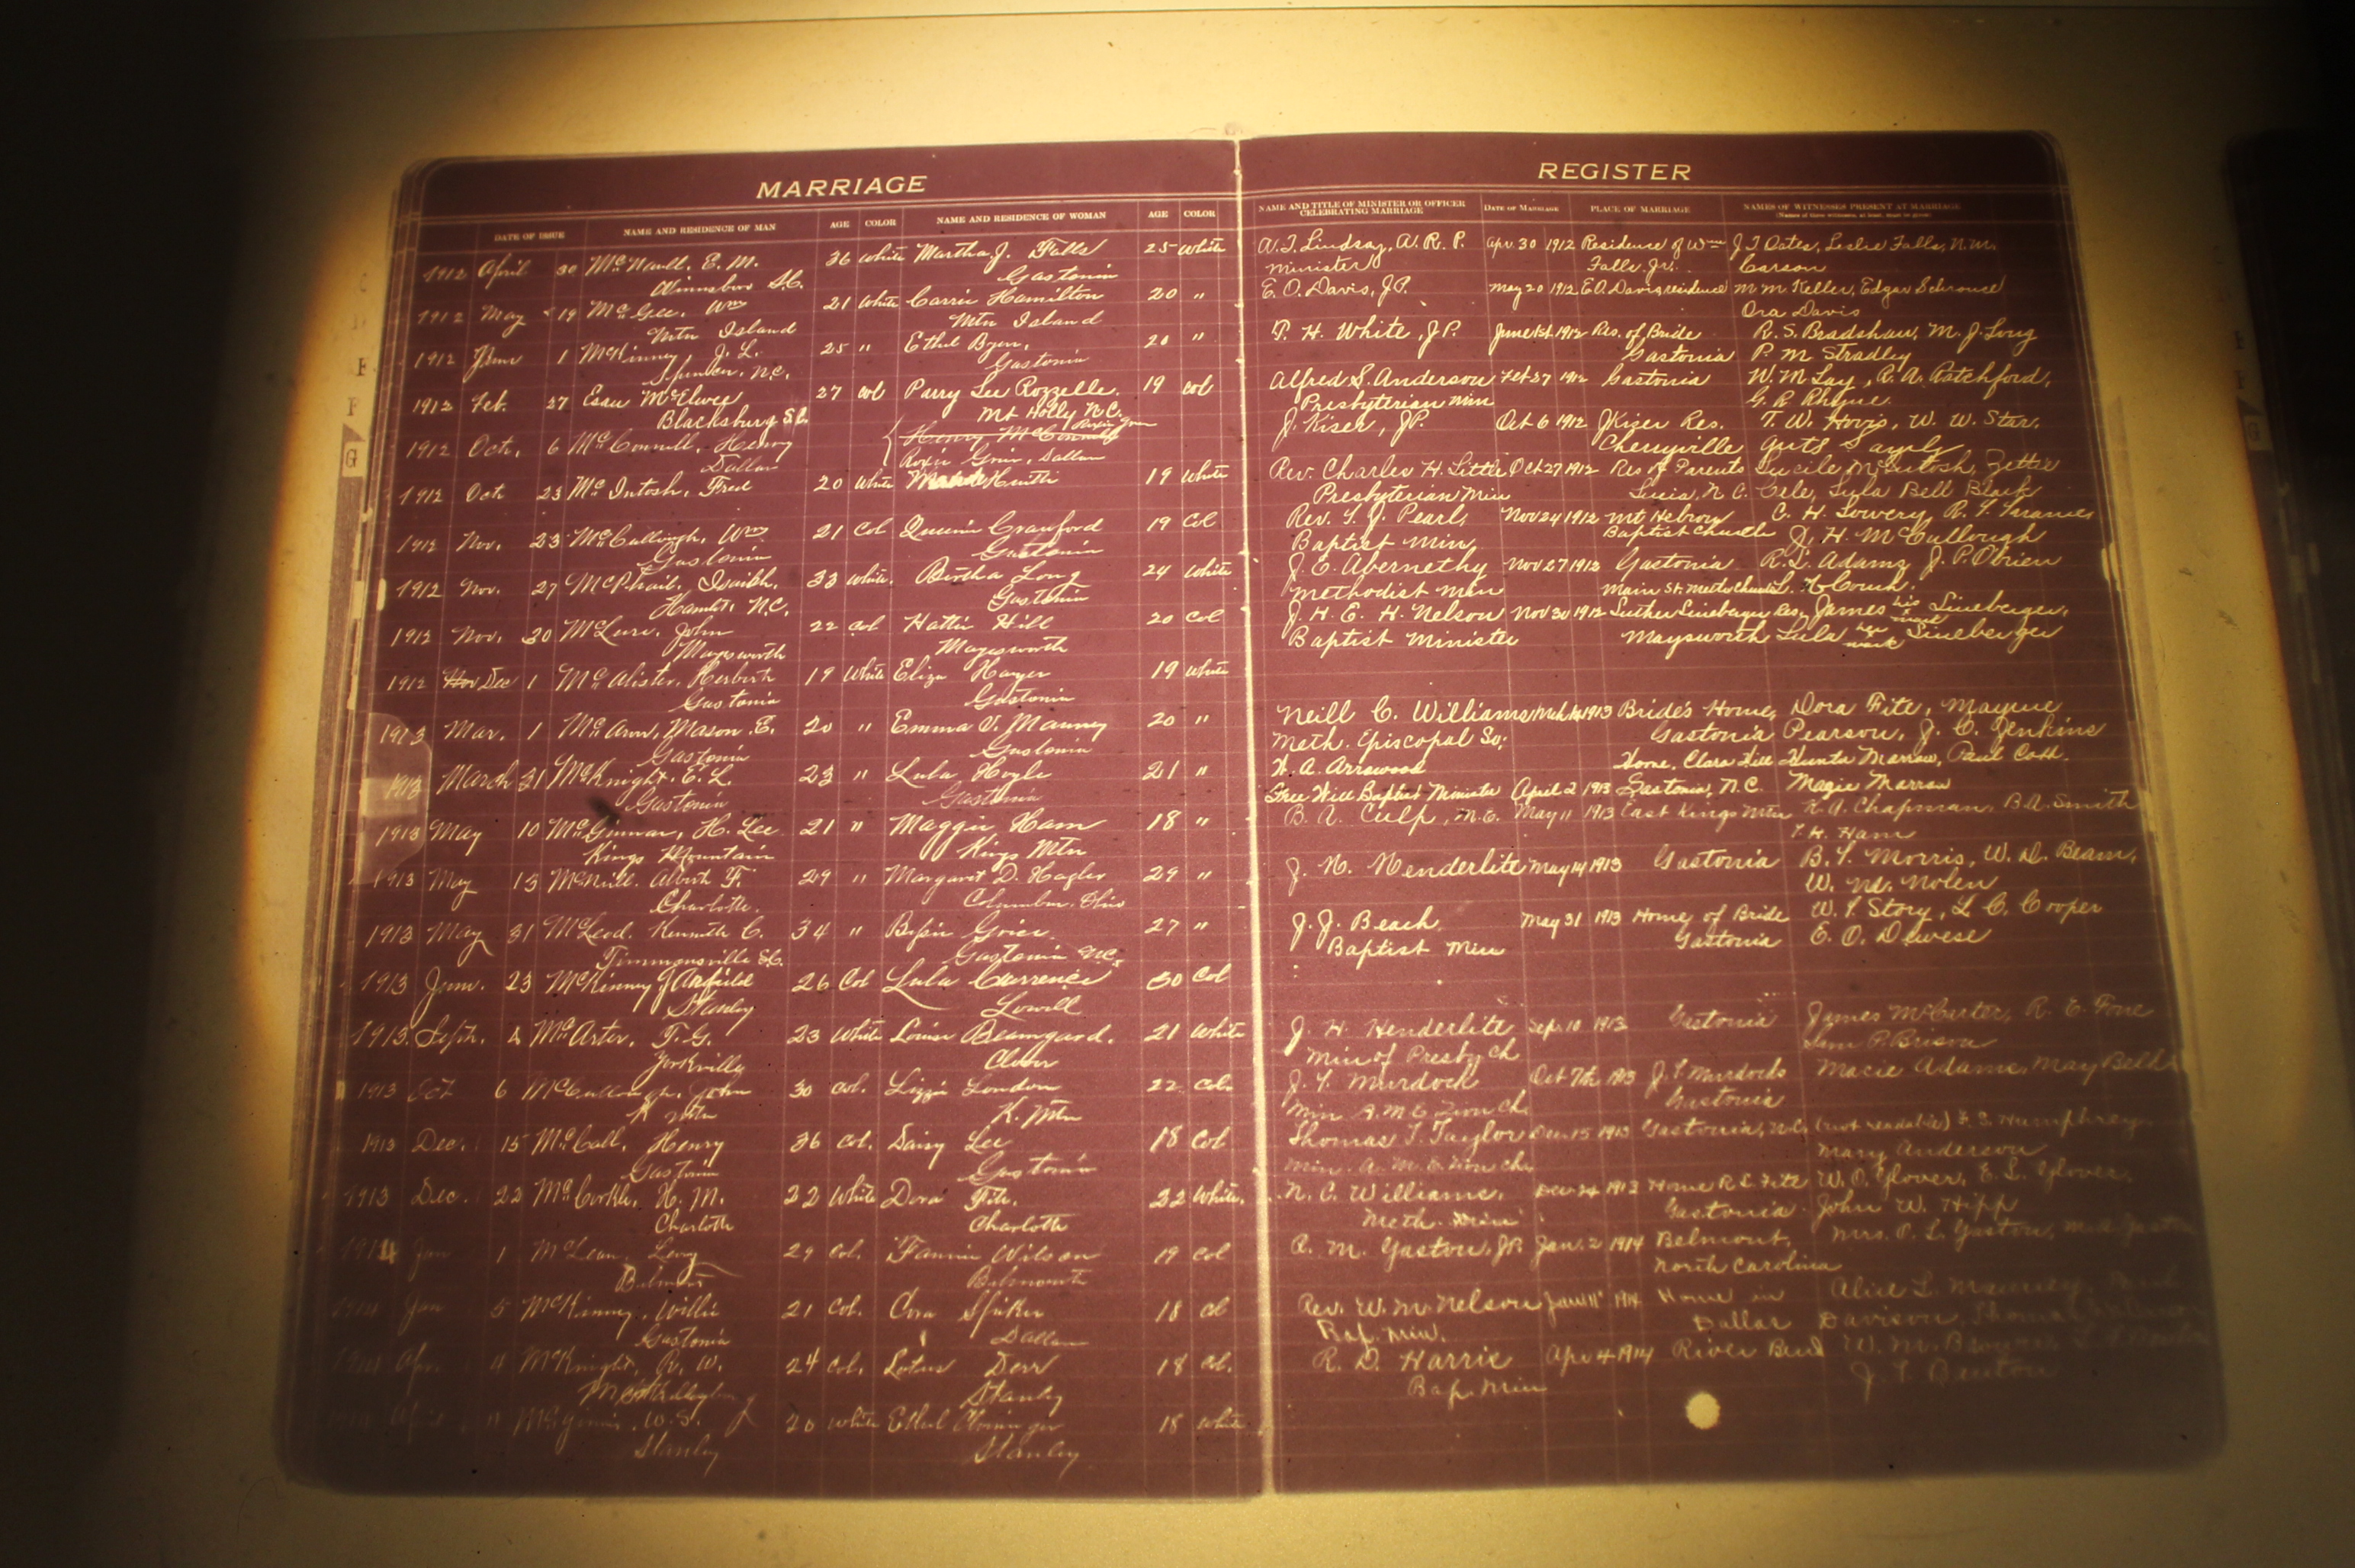 MARRIAGE
DATE OF ISSUE NAME AND RESIDENCE OF MAN AGE COLOR NAME AND RESIDENCE OF WOMAN AGE COLOR
1912 April 30 McNaull, E. M. 36 White Martha J. Falls 25 White
Winnsboro S.C. Gastonia
1912 May 19 McGee, Wm 21 White Carrie Hamilton 20 "
Mtn Island Mtn Island
1912 June 1 McKinney, J. L. 25 " Ethel Byers, 20 "
Spencer, N.C. Gastonia
1912 Feb. 27 Esau McElwee 27 col Parry Lee Rozzelle 19 col
Blacksburg S.C. Mt Holly N.C.
1912 Oct. 6 McConnell, Henry Henry McConnell
Dallas Roxie Grier, Dallas
1912 Oct 23 McIntosh, Fred 20 White 19 White
1912 Nov. 23 McCullough, Wm 21 Col Crawford 19 Col
Gastonia Gastonia
1912 Nov. 27 McPhail, 33 White Bertha Long 24 White
Hamlet, N.C. Gastonia
1912 Nov. 30 McLure, John 22 Col Hattie Hill 20 Col
Mayesworth Mayesworth
1912 Nov Dec 1 McAlister, Herbert 19 White Eliza 19 White
Gastonia Gastonia
1913 Mar. 1 Mason E. 20 " Emma V. Mauney 20 "
Gastonia Gastonia
1913 March 31 McKnight, E. L. 23 " Lula Hogle 21 "
Gastonia Gastonia
1913 May 10 H. Lee 21 " Maggie Ham 18 "
Kings Mountain Kings Mtn
1913 May 13 McNeill, Albert F. 29 " Margaret D. Hagler 29 "
Charlotte. Ohio
1913 May 31 McLeod, Kenneth C. 34 " Grier 27 "
Timmonsville S.C. Gastonia N.C.
1913 June 23 McKinney Garfield 26 Col Lula Currence 30 Col
Stanley Lowell
1913 Sept. 4 McArter, T. G. 23 White Louise Beamgard. 21 White
Yorkville Clover
1913 Oct 6 McCullough, John 30 Col. Lizzie London 22 Col.
K Mtn K. Mtn
1913 Dec. 15 McCall, Henry 36 Col. Daisy Lee 18 Col
Gastonia Gastonia
1913 Dec. 22 McCorkle, H. M. 22 White Dora Fite. 22 White.
Charlotte Charlotte
1914 Jan 1 McLean, Levy 29 Col. Fannie Wilson 19 Col
Belmont Belmont
1914 Jan 5 McKinney, Willie 21 Col. Cora 18 Col
Gastonia Dallas
1914 Apr. 4 McKnight, R. W. 24 Col. Lotus Derr 18 Col.
Stanley
April 11 McGinnis, W. S. 20 White Ethel Clonniger 18 White
Stanley Stanley
REGISTER
NAME AND TITLE OF MINISTER OR OFFICER CELEBRATING MARRIAGE DATE OF MARRIAGE PLACE OF MARRIAGE NAMES OF WITNESSES PRESENT AT MARRIAGE
(Names of three witnesses, at least, must be given)
A. T. Lindsay, A. R. P. Apr. 30 1912 Residence of Wm J. T. Oates, Leslie Falls, N. M.
Minister Falls Jr. Carson
E. O. Davis, J.P. May 20 1912 E.O. Davis residence M M Keller, Edgar Schronce
Ora Davis
T. H. White, J P. June 1st 1912 Res. of Bride R. S. Bradshaw, M. J. Long
Gastonia P. M Stradley
Alfred S. Anderson Feb 27 1912 Gastonia W. M Lay, R. A. Ratchford,
Presbyterian min G. R Rhyne
J. Kiser, JP. Oct 6 1912 J Kiser Res. T. W. Hovis, W. W. Star,
Cherryville
Rev. Charles H. Little Oct 27 1912 Res of Parents Lucile McIntosh, Zettie
Presbyterian Min Lucia, N C. Cele, Lula Bell Black
Rev. T. J. Pearl, Nov 24 1912 Mt Hebron C. H. Lowery, R. T.
Baptist Min Baptist Church J. H. McCullough
J. E. Abernethy Nov 27 1912 Gastonia R. L. Adams J. P. Obrien
Methodist Min Main St. Meth Church
J. H. E. H. Nelson Nov 30 1912 Luther Lineberger Res. James his mark Lineberger,
Baptist Minister Maysworth Lula her mark Lineberger
Neill C. Williams 1913 Bride's Home, Dora Fite, Mayme
Meth. Episcopal So. Gastonia Pearson, J. C. Jenkins
H. A. Arrowood Home, Clara Hill Hunter Marrow, Paul Cobb.
Free Will Baptist Minister April 2 1913 Gastonia, N. C. Magie Marrow
B. A. Culp, M.E. May 11 1913 East Kings Mtn H. A. Chapman, B. A. Smith
T. H. Ham
J. H. Henderlite May 14 1913 Gastonia B. T. Morris, W. D. Beam,
W. M. Nolen
J. J. Beach May 31 1913 Home of Bride W. T. Story, L. C. Cooper
Baptist Min Gastonia E. O. Dewese
J. H. Henderlite Sep. 10 1913 Gastonia James McCarter, R. E.
Min of Presby Ch P. Brison
J. T. Murdock Oct 7th 1913 J. T. Murdocks Macie Adams, May Bell
Min A. M. E Zion Ch Gastonia
Thomas T. Taylor Dec 15 1913 Gastonia, N.C. (not readable) F. S. Humphrey
Min. A. M. E. Zion Ch Mary Anderson
N. C. Williams, Dec 24 1913 Home R L Fite W. O. Glover, E. L. Glover,
Meth. Min Gastonia John W. Hipp
R. M. Gaston, J.P. Jan. 2 1914 Belmont, Mrs. P. L. Gaston,
North Carolina
Rev. W. M. Nelson Jan 11 1914 Home in Alice L.
Bap. Min. Dallas Davison,
R. D. Harris Apr 4 1914 River Bend W. M.
Bap. Min J. T.